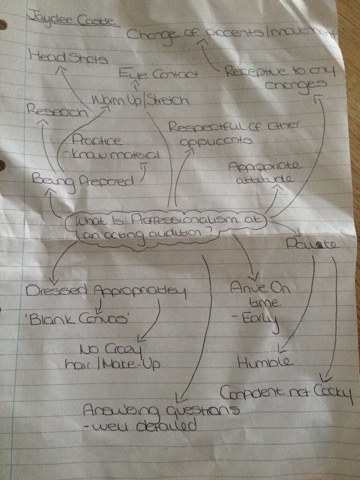 Jaydee Castle
Change of accents/movement
Head Shots
Eye Contact
Receptive to any
changes
Research
Warm Up/Stretch
Practice
- know material
Respectful of other
applicants
Being Prepared
Appropriate
attitude
What Is Proffessionalism at
an acting audition?
Polite
Dressed Appropriatley
'Blank Canvas'
No Crazy
hair/Make-Up
Arrive On
time
- Early
Humble
Confident not Cocky
Answering questions
- well detailed